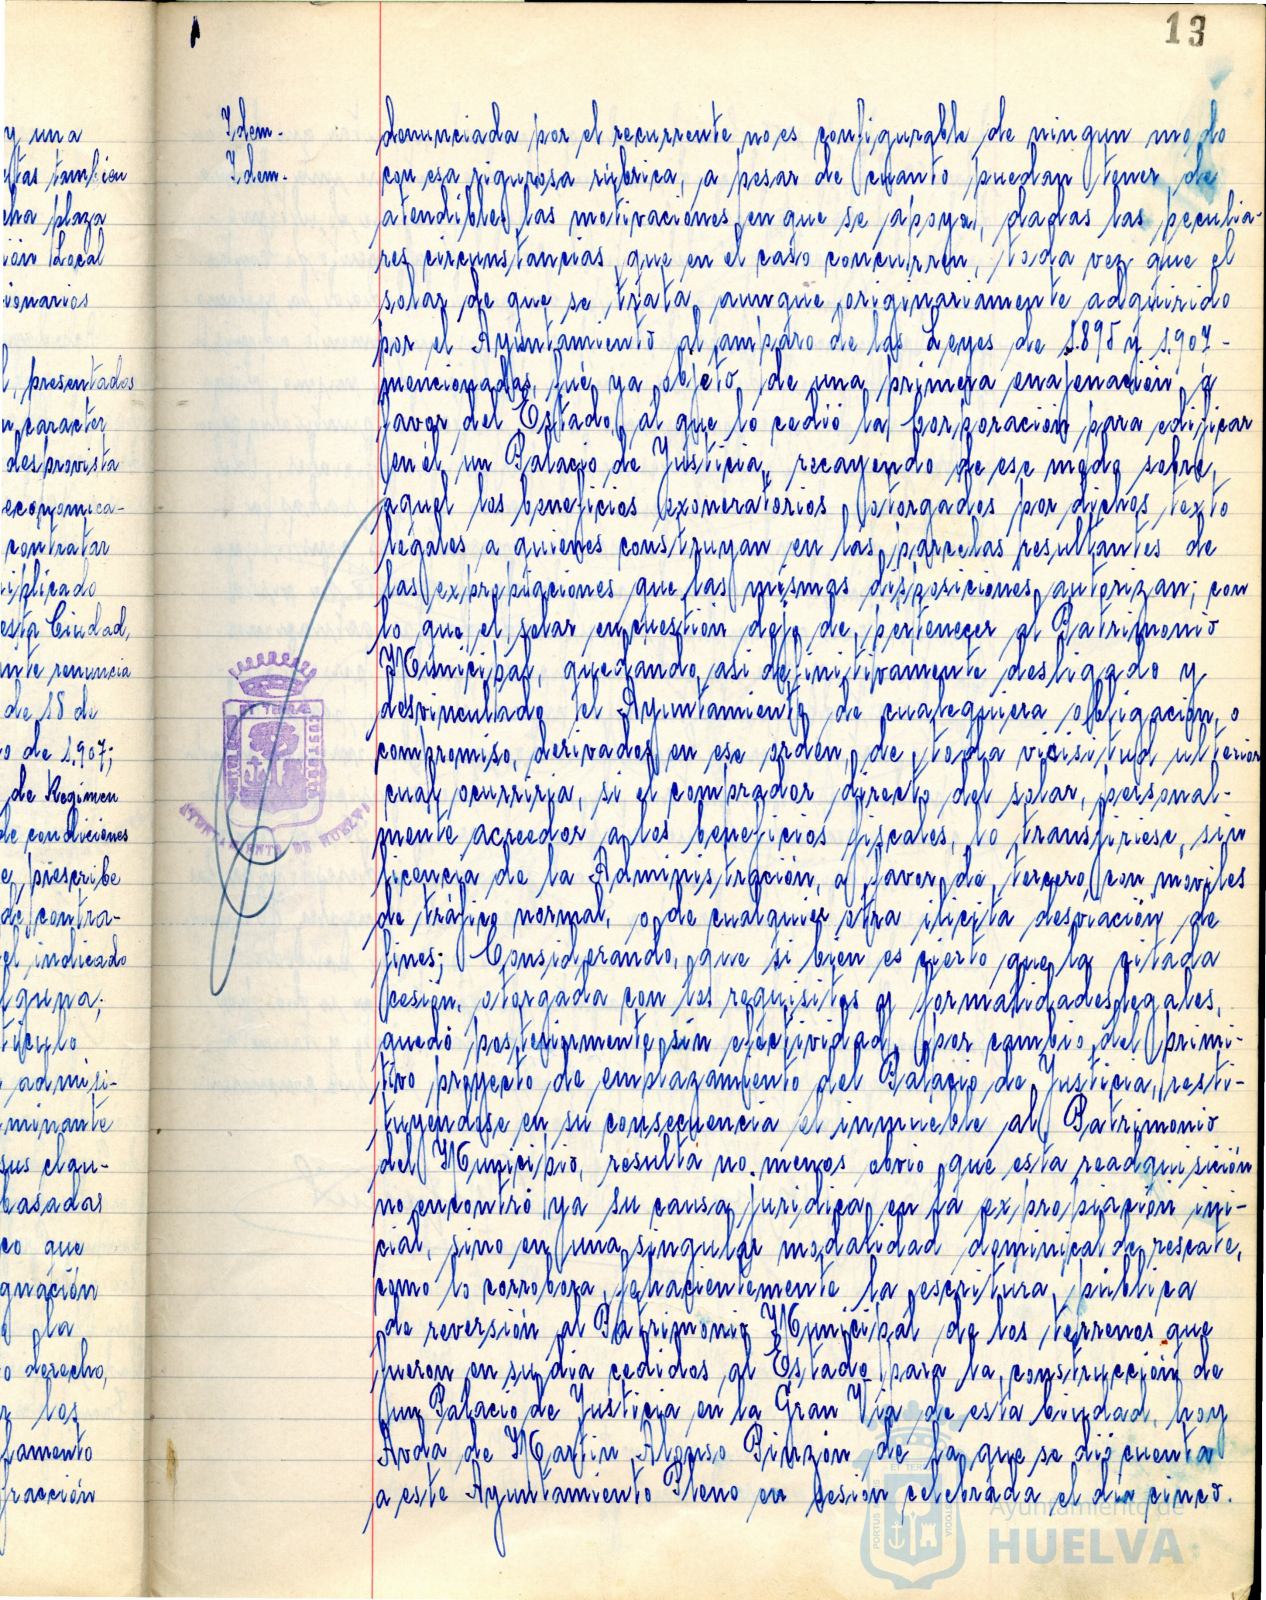 13
y una
estas también
cha plaza
ión Local
ionarios
l, presentados
n caracter
desprovista
economica-
contratar
iplicado
esta Ciudad,
nte renuncia
de 18 de
o de 1.907;
de Regimen
de condiciones
e prescribe
de contra-
el indicado
lguna;
tículo
admisi-
minante
sus clau-
basadas
co que
gnación
la
o derecho,
r los
lamento
fracción
Idem.-
Idem.-
denunciada por el recurrente no es configurable de ningun modo
con esa rigurosa rúbrica, a pesar de cuanto puedan tener de
atendibles las motivaciones en que se apoya, dadas las peculia-
res circunstancias que en el caso concurren, toda vez que el
solar de que se trata, aunque originariamente adquirido
por el Ayuntamiento al amparo de las Leyes de 1.895 y 1.907 -
mencionadas, fué ya objeto de una primera enajenación a
favor del Estado, al que lo cedió la Corporación para edificar
en él un Palacio de Justicia, recayendo de ese modo sobre
aquel los beneficios exoneratorios otorgados por dichos texto
legales a quienes construyan en las parcelas resultantes de
las expropiaciones que las mismas disposiciones autorizan; con
lo que el solar en cuestión dejó de pertenecer al Patrimonio
Municipal, quedando asi definitivamente desligado y
desvinculado el Ayuntamiento de cualequiera obligación o
compromiso, derivados en ese orden, de toda vicisitud ulterior
cual ocurriria, si el comprador directo del solar, personal-
mente acreedor a los beneficios fiscales, lo transfiriese, sin
licencia de la Administración, a favor de tercero con moviles
de tráfico normal, o de cualquier otra ilicita desviación de
fines; Considerando, que si bien es cierto que la citada
cesión, otorgada con los requisitos y formalidades legales,
quedó posteriormente sin efectividad, por cambio del primi-
tivo proyecto de emplazamiento del Palacio de Justicia, resti-
tuyendose en su consecuencia el inmueble al Patrimonio
del Municipio, resulta no menos obvio que esta readquisición
no encontró ya su causa juridica en la expropiación ini-
cial, sino en una singular modalidad dominical de rescate,
como lo corrobora fehacientemente la escritura pública
de reversión al Patrimonio Municipal de los terrenos que
fueron en su dia cedidos al Estado para la construcción de
un Palacio de Justicia en la Gran Via de esta Ciudad, hoy
Avda de Martin Alonso Pinzón, de la que se dió cuenta
a este Ayuntamiento Pleno en sesión celebrada el dia cinco.
AYUNTAMIENTO DE HUELVA
Ayuntamiento de
HUELVA